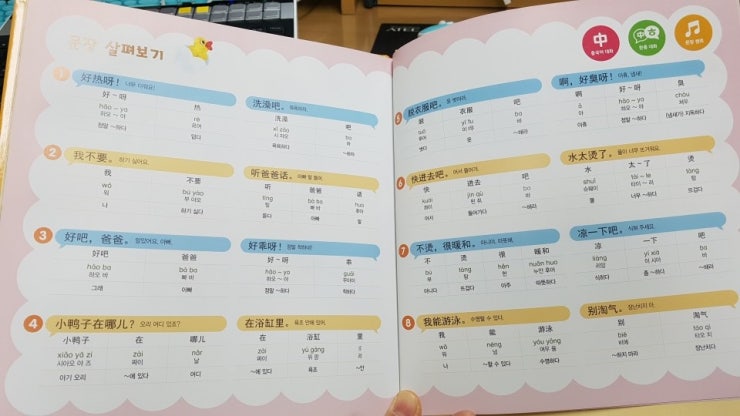 문장 살펴보기
1 好热呀! 너무 더워요!
好~呀 热
hǎo ~ ya rè
하오 ~ 야 르어
정말 ~하다 덥다
洗澡吧。 목욕하자.
洗澡 吧
xǐ zǎo ba
시 자오 바
목욕하다 ~하자
2 我不要。 하기 싫어요.
我 不要
wǒ bú yào
워 부 야오
나 하기 싫다
听爸爸话。 아빠 말 들어.
听 爸爸 话
tīng bà ba huà
팅 빠 바 후아
듣다 아빠 말
3 好吧，爸爸。 알았어요, 아빠.
好吧 爸爸
hǎo ba bà ba
하오 바 빠 바
그래 아빠
好乖呀! 정말 착하네!
好~呀 乖
hǎo ~ ya guāi
하오 ~ 야 꾸아이
정말 ~하다 착하다
4 小鸭子在哪儿? 오리 어디 있죠?
小鸭子 在 哪儿
xiǎo yā zi zài nǎr
시아오 야 즈 짜이 날
아기 오리 ~에 있다 어디
在浴缸里。 욕조 안에 있어.
在 浴缸 里
zài yù gāng lǐ
짜이 위 깡 리
~에 있다 욕조 ~안
中 중국어 대화
中古 한중 대화
문장 챈트
5 脱衣服吧。 옷 벗어라.
脱 衣服 吧
tuō yī fu ba
투어 이 푸 바
벗다 옷 ~해라
啊，好臭呀! 아휴, 냄새!
啊 好~呀 臭
á hǎo ~ ya chòu
아 하오 ~ 야 처우
아휴 정말 ~하다 (냄새가) 지독하다
6 快进去吧。 어서 들어가.
快 进去 吧
kuài jìn qù ba
콰이 찐 취 바
어서 들어가다 ~해라
水太烫了。 물이 너무 뜨거워요.
水 太~了 烫
shuǐ tài ~ le tàng
슈웨이 타이 ~ 러 탕
물 너무 ~하다 뜨겁다
7 不烫，很暖和。 아니야, 따뜻해.
不 烫 很 暖和
bú tàng hěn nuǎn huo
부 탕 헌 누안 후어
아니다 뜨겁다 아주 따뜻하다
凉一下吧。 식혀 주세요.
凉 一下 吧
liàng yí xià ba
리앙 이 시아 바
식히다 좀 ~하다 ~해라
8 我能游泳。 수영할 수 있다.
我 能 游泳
wǒ néng yóu yǒng
워 넝 여우 용
나 ~할 수 있다 수영하다
别淘气。 장난치지 마.
别 淘气
bié táo qì
비에 타오 치
~하지 마라 장난치다